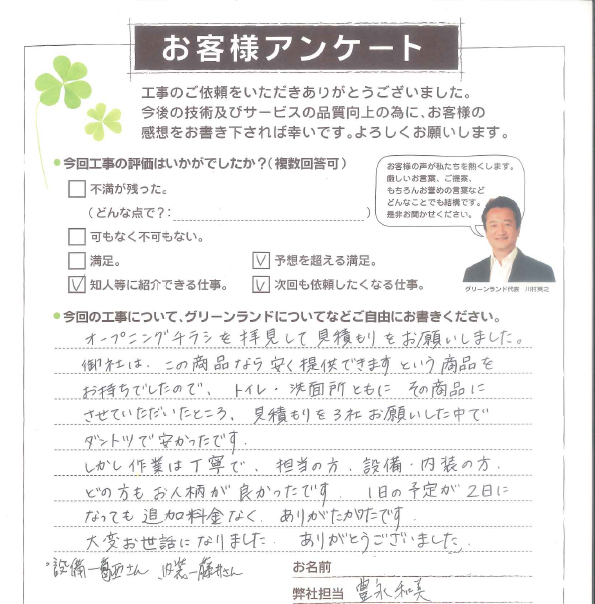 お客様アンケート
工事のご依頼をいただきありがとうございました。
今後の技術及びサービスの品質向上の為に、お客様の
感想をお書き下されば幸いです。よろしくお願いします。
今回工事の評価はいかがでしたか?(複数回答可)
不満が残った。
(どんな点で?: )
可もなく不可もない。
満足。
予想を超える満足。
知人等に紹介できる仕事。
次回も依頼したくなる仕事。
お客様の声が私たちを熱くします。
厳しいお言葉、ご提案、
もちろんお誉めの言葉など
どんなことでも結構です。
是非お聞かせください。
グリーンランド代表 川村英之
今回の工事について、グリーンランドについてなどご自由にお書きください。
オープニングチラシを拝見して見積もりをお願いしました。
御社は、この商品なら安く提供できますという商品を
お持ちでしたので、トイレ・洗面所ともに その商品に
させていただいたところ、見積もりを3社お願いした中で
ダントツで安かったです。
しかし作業は丁寧で、担当の方、設備・内装の方、
どの方もお人柄が良かったです。1日の予定が2日に
なっても追加料金なく、ありがたかったです。
大変お世話になりました。ありがとうございました。
設備ー葛西さん 内装ー藤井さん
お名前
弊社担当 豊永和美